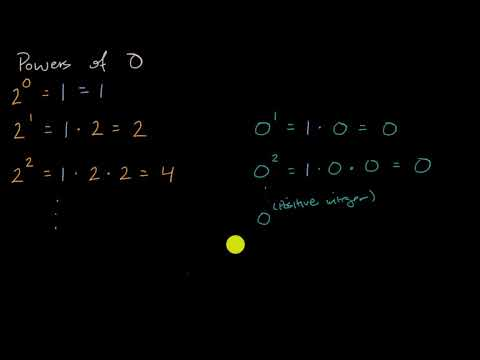 Powers of 0
2⁰ = 1 = 1
2¹ = 1 · 2 = 2
2² = 1 · 2 · 2 = 4
0¹ = 1 · 0 = 0
0² = 1 · 0 · 0 = 0
0^(Positive integer)